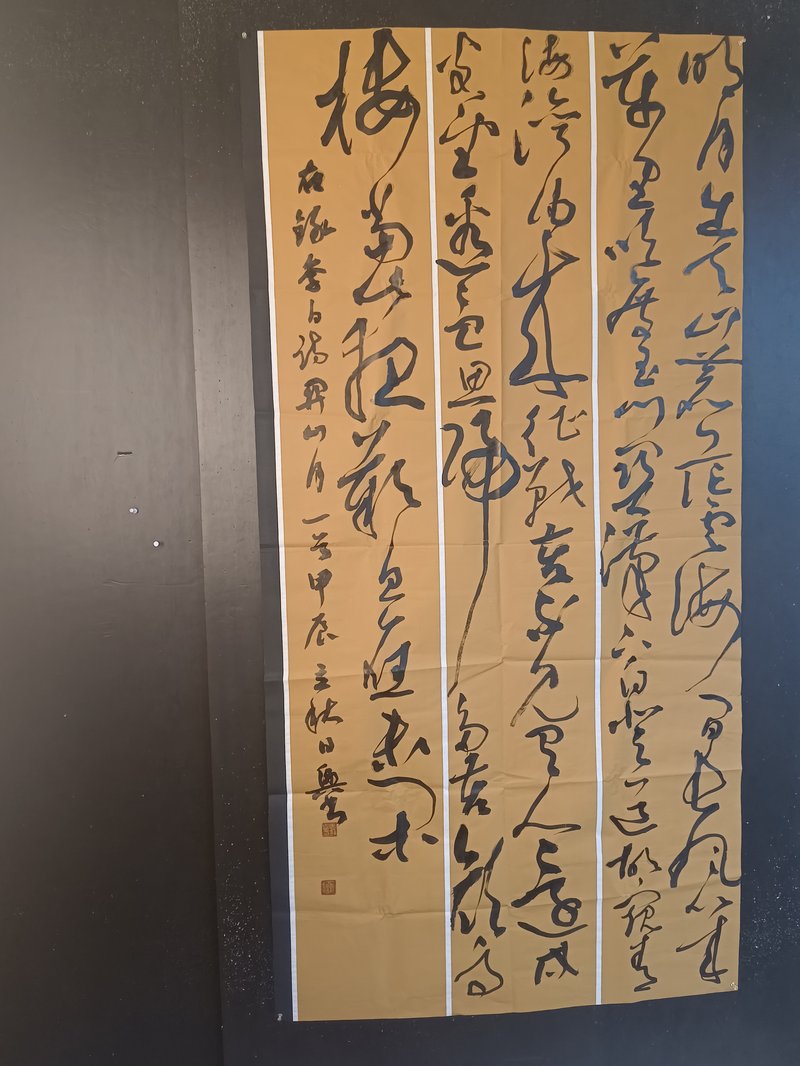 明月出天山蒼茫雲海間長風幾
萬里吹度玉門關漢下白登道胡窺青
海灣由來征戰不見有人還戍
客望邊邑思歸多苦顏高
樓當此夜歎息應未閑
右錄李白詩關山月一首甲辰立秋日興書